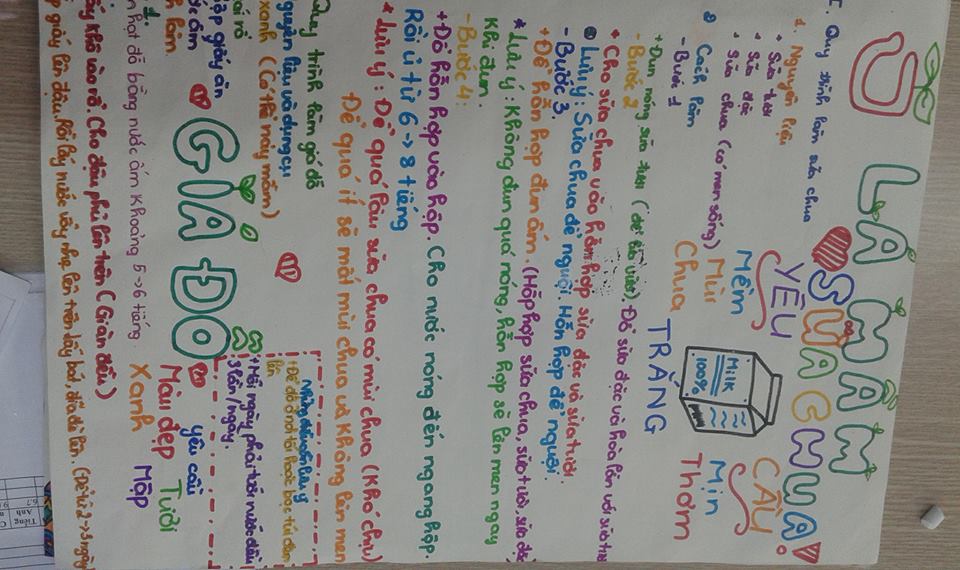 Ủ LÀ MẦM
SỮA CHUA
I. Quy trình làm sữa chua
1. Nguyên liệu
+ Sữa tươi
+ Sữa đặc
+ Sữa chua (có men sống)
2 Cách làm
- Bước 1
+ Đun nóng sữa tươi
- Bước 2
+ Cho sữa chua vào hỗn hợp sữa đặc và sữa tươi
Lưu ý: Sữa chua để nguội. Hỗn hợp để nguội.
- Bước 3.
+ Để hỗn hợp đun ấm. (Hỗn hợp sữa chua, sữa tươi, sữa đặc
* Lưu ý: Không đun quá nóng, hỗn hợp sẽ lên men ngay
khi đun.
- Bước 4:
+ Đổ hỗn hợp vào hộp. Cho nước nóng đến ngang hộp.
Rồi ủ từ 6 -> 8 tiếng
* Lưu ý: Để quá lâu sữa chua có mùi chua (khó chịu)
Để quá ít sẽ mất mùi chua và không lên men
YÊU CẦU
Mềm Mịn
Mùi Thơm
Chua
TRẮNG
MiLK
100%
GIÁ ĐỖ
Quy trình làm giá đỗ
nguyên liệu và dụng cụ
xanh (Có thể nảy mầm)
rổ
giấy ăn
ấm
làm
1.
hạt đỗ bằng nước ấm khoảng 5 -> 6 tiếng
khô vào rổ. Cho đậu phủ lên trên (Giàn đều)
giấy lên đậu. Rồi lấy nước vẩy nhẹ lên trên
Những điều cần lưu ý
+ Để đỗ ở nơi tối hoặc bọc túi đen
lên
+ Mỗi ngày phải tưới nước đều
3 lần/ngày.
yêu cầu
Màu đẹp Tươi
Xanh Mập
Tiếng
Anh
6.7